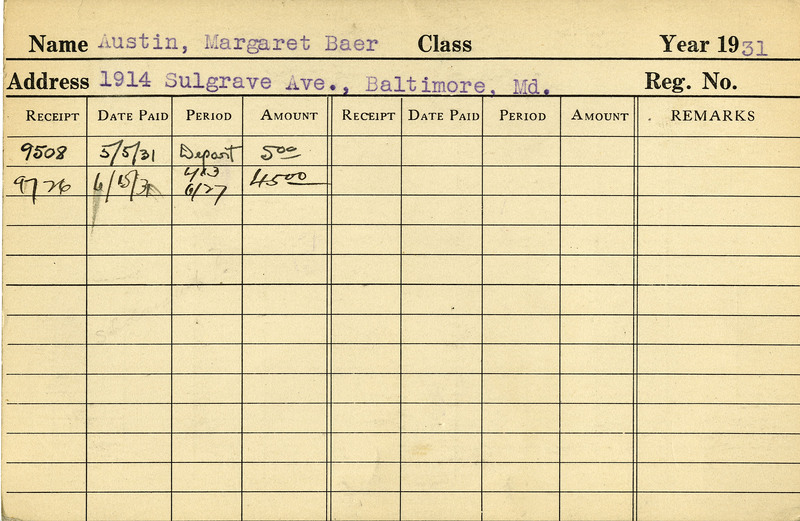 Name Austin, Margaret Baer Class Year 1931
Address 1914 Sulgrave Ave., Baltimore, Md. Reg. No.
RECEIPT DATE PAID PERIOD AMOUNT RECEIPT DATE PAID PERIOD AMOUNT REMARKS
9508 5/5/31 Deposit 5 00
9726 6/15/31 6/27 45 00